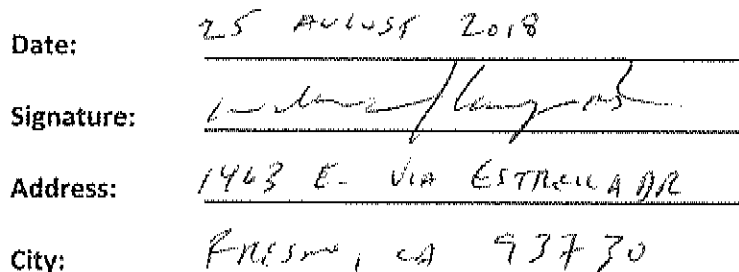 Date: 25 AUGUST 2018
Signature:
Address: 1463 E. VIA ESTRELLA DR
City: FRESNO, CA 93730